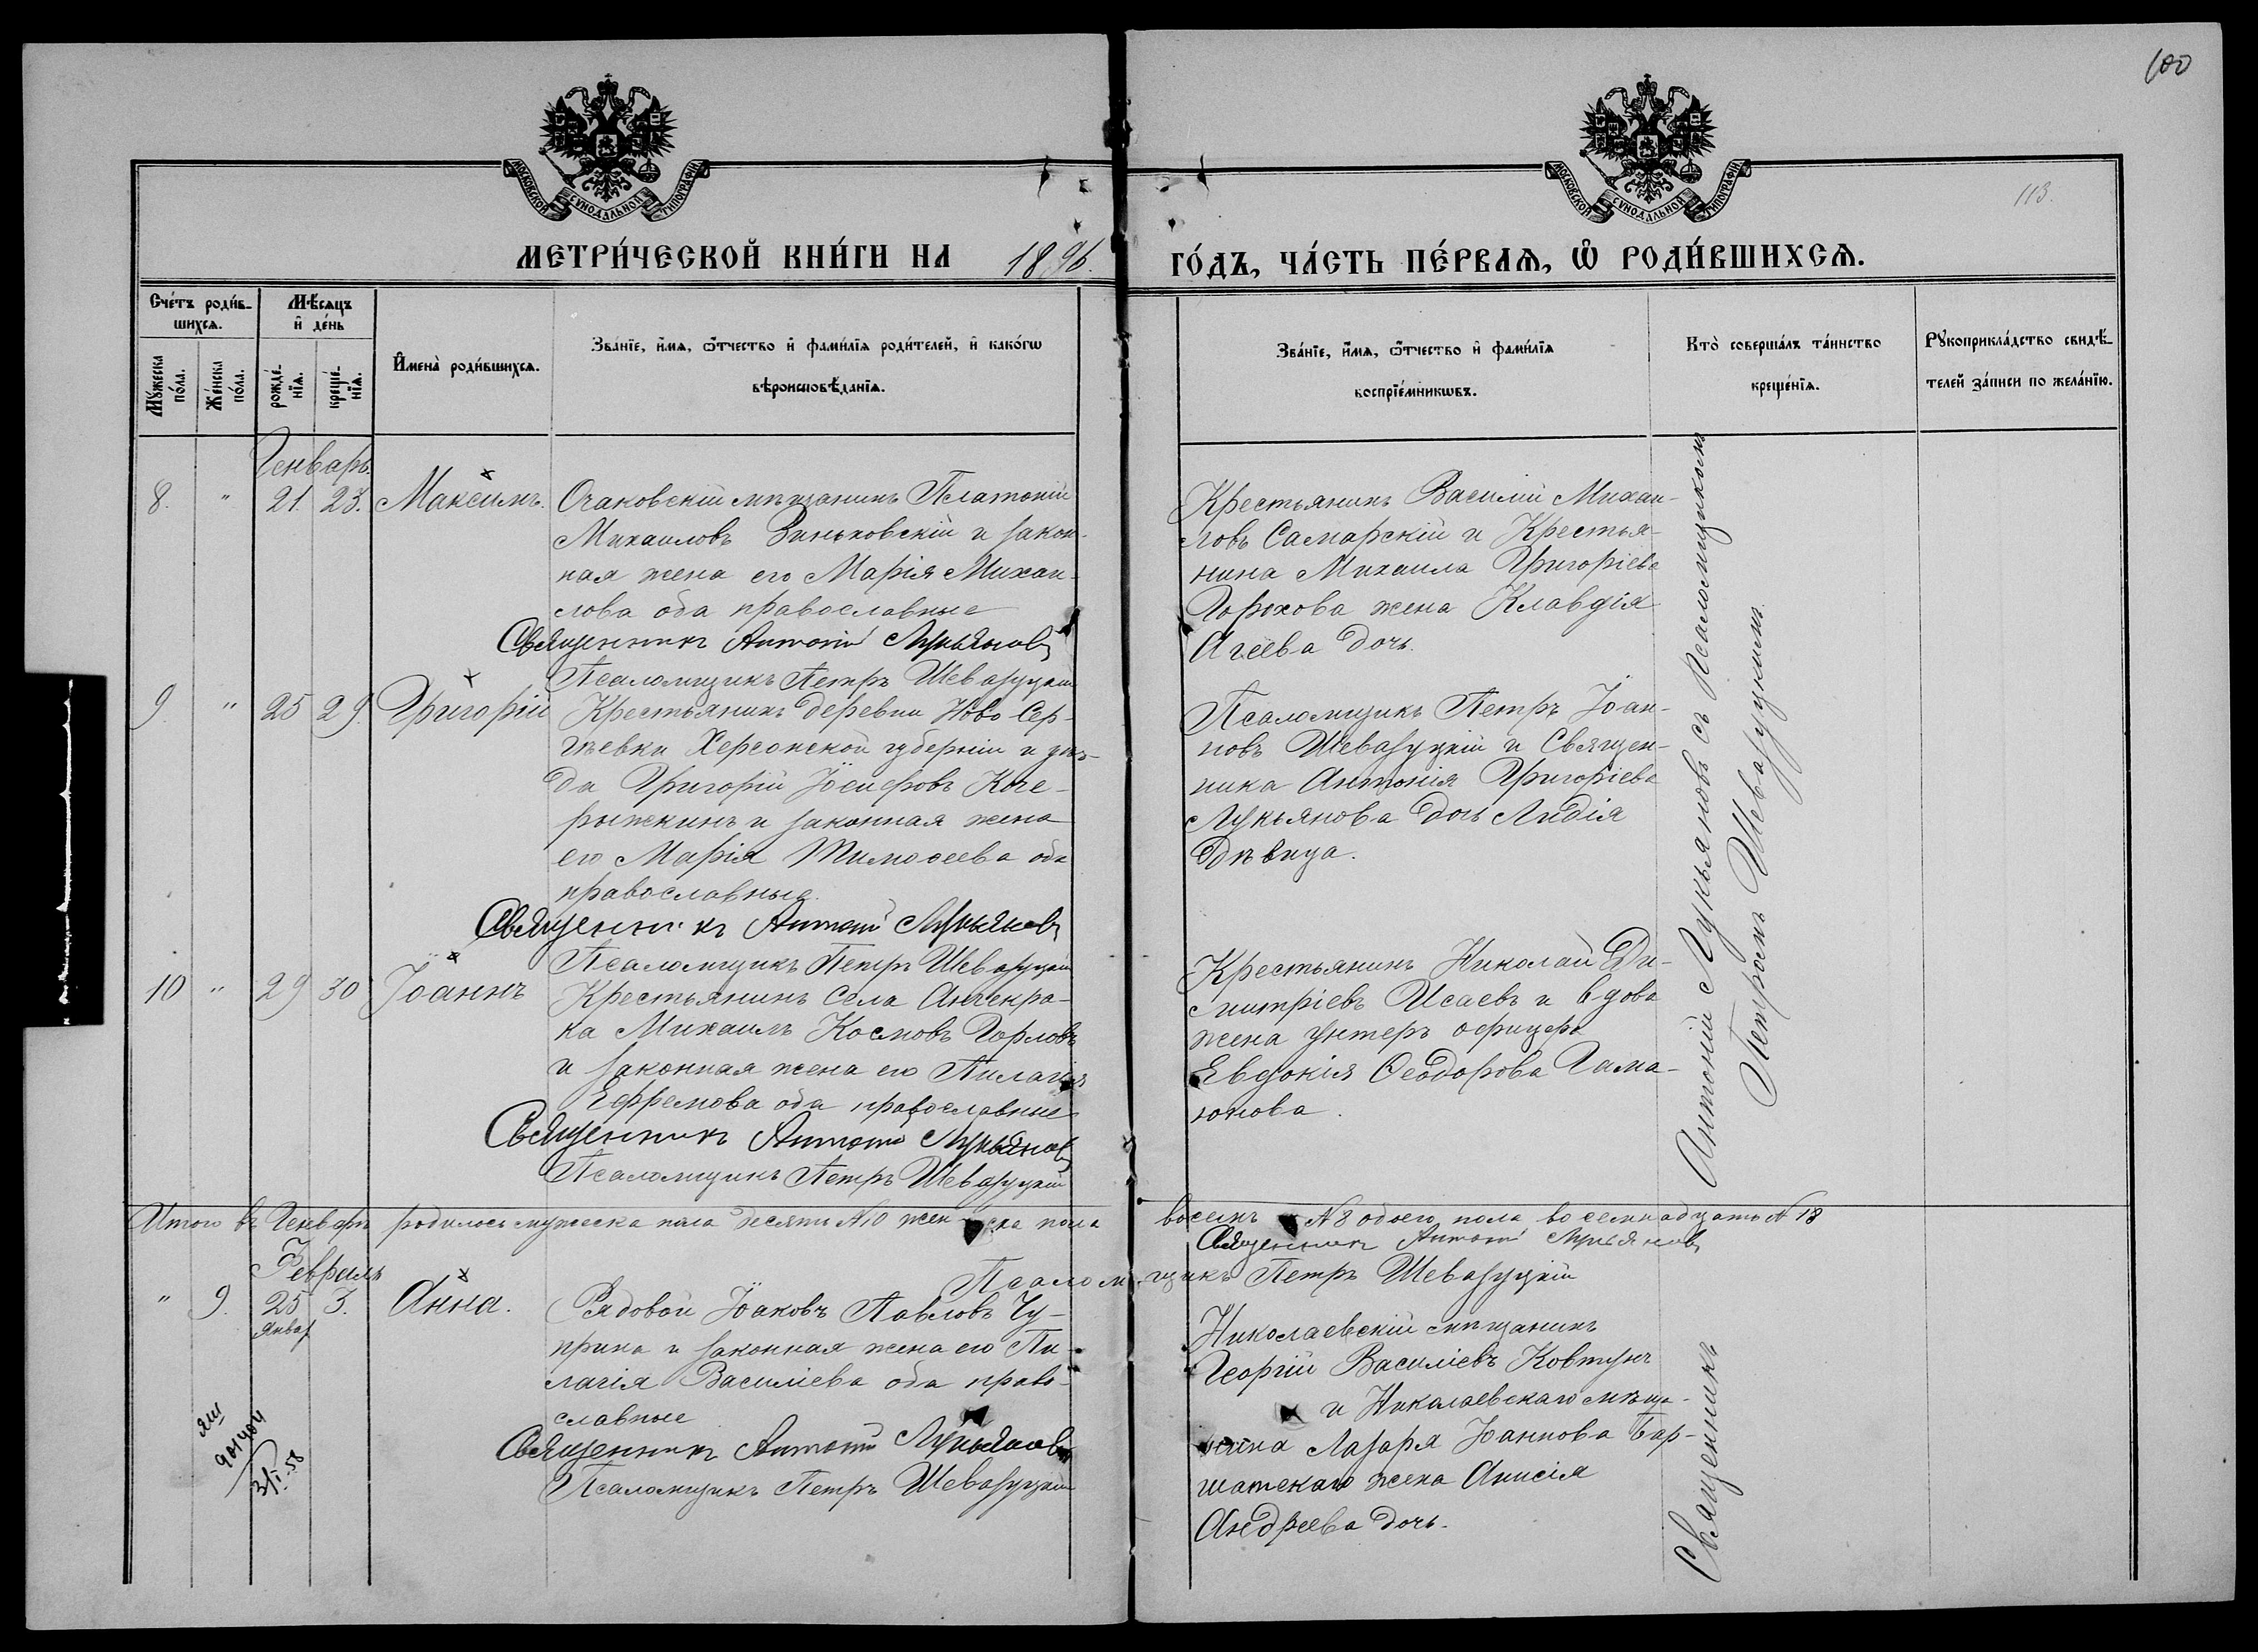 100
113.
МОСКОВСКОЙ СѴНОДАЛЬНОЙ ТИПОГРАФІИ
МОСКОВСКОЙ СѴНОДАЛЬНОЙ ТИПОГРАФІИ
МЕТРИ́ЧЕСКОЙ КНИ́ГИ НА 1896. ГО́ДЪ, ЧА́СТЬ ПЕ́РВАѦ, Ѡ҆ РОДИ́ВШИХСѦ.
Сче́тъ роди́в-
шихсѧ.
Мꙋ́жеска по́ла.
Же́нска по́ла.
Мѣ́сѧцъ
и҆ де́нь
рожде́-
нїѧ.
креще́-
нїѧ.
И҆мена̀ роди́вшихсѧ.
Зва́нїе, и҆́мѧ, ѻ҆́тчество и҆ фами́лїѧ роди́телей, и҆ како́гѡ
вѣроисповѣ́данїѧ.
Зва́нїе, и҆́мѧ, ѻ҆́тчество и҆ фами́лїѧ
воспрїе́мникѡвъ.
Кто̀ соверша́лъ та́инство
креще́нїѧ.
Рꙋкоприкла́дство свидѣ́-
телей за́писи по жела́нїю.
Генварь.
8. " 21. 23. Максимъ.
Очаковскій мѣщанинъ Платоній
Михаиловъ Зиньковскій и закон-
ная жена его Марія Михаи-
лова оба православные
Священникъ Антоній Лукьяновъ
Псаломщикъ Петръ Шевазуцкій
Крестьянинъ Василій Михаи-
ловъ Самарскій и Крестья-
нина Михаила Григоріева
Горохова жена Клавдія
Агеева дочь.
9. " 25 29. Григорій
Крестьянинъ деревни Ново-Сер-
гѣевки Херсонской губерніи и уѣз-
да Григорій Іосифовъ Коче-
рыжкинъ и законная жена
его Марія Тимоѳеева оба
православные.
Священникъ Антоній Лукьяновъ
Псаломщикъ Петръ Шевазуцкій
Псаломщикъ Петръ Іоан-
новъ Шевазуцкій и Священ-
ника Антонія Григоріева
Лукьянова дочь Лидія
дѣвица.
10 " 29 30 Іоаннъ
Крестьянинъ Села Анчекра-
ка Михаилъ Космовъ Горловъ
и законная жена его Пилагія
Ефремова оба православные
Священникъ Антоній Лукьяновъ
Псаломщикъ Петръ Шевазуцкій
Крестьянинъ Николай Ди-
митріевъ Исаевъ и вдова
жена унтеръ офицера
Евдокія Ѳеодорова Гама-
юнова.
Антоній Лукьяновъ съ Псаломщикомъ
Петромъ Шевазуцкимъ.
Итого въ Генварѣ родилось мужеска пола десять №10 женска пола восемь №8 обоего пола восемнадцать №18
Священникъ Антоній Лукьяновъ
Псаломщикъ Петръ Шевазуцкій
Февраль
" 9. 25 3. Анна.
Январ
Рядовой Іоаковъ Павловъ Чу-
прина и законная жена его Пи-
лагія Василіева оба право-
славные
Священникъ Антоній Лукьяновъ
Псаломщикъ Петръ Шевазуцкій
Николаевскій мѣщанинъ
Георгій Василіевъ Ковтунъ
и Николаевскаго мѣща-
нина Лазаря Іоаннова Бар-
шатскаго жена Анисія
Андреева дочь.
Священникъ
901404
31/I-58